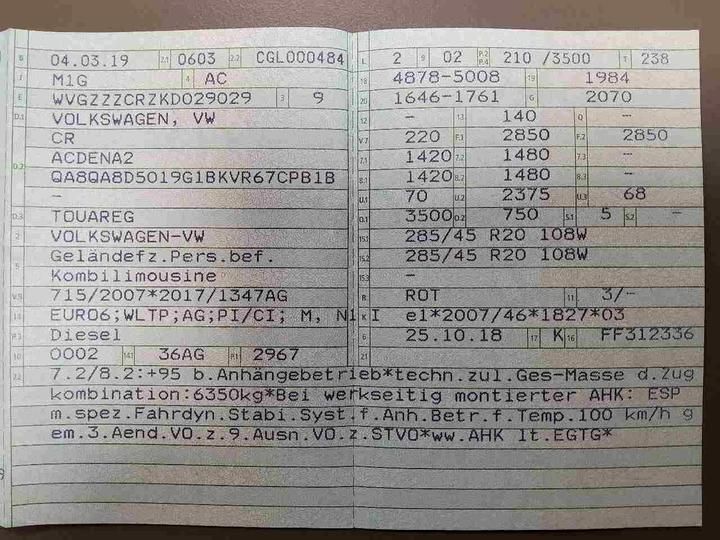 B 04.03.19 2.1 0603 2.2 CGL000484
J M1G 4 AC
E WVGZZZCRZKD029029 3 9
D.1 VOLKSWAGEN, VW
CR
D.2 ACDENA2
QA8QA8D5019G1BKVR67CPB1B
-
D.3 TOUAREG
2 VOLKSWAGEN-VW
5 Geländefz.Pers.bef.
Kombilimousine
V.9 715/2007*2017/1347AG
14 EURO6;WLTP;AG;PI/CI; M, N1 I
P.3 Diesel
10 0002 14.1 36AG P.1 2967
L 2 9 02 P.2 P.4 210 /3500 T 238
18 4878-5008 19 1984
20 1646-1761 G 2070
12 - 13 140 Q -
V.7 220 F.1 2850 F.2 2850
7.1 1420 7.2 1480 7.3 -
8.1 1420 8.2 1480 8.3 -
U.1 70 U.2 2375 U.3 68
O.1 3500 O.2 750 S.1 5 S.2 -
15.1 285/45 R20 108W
15.2 285/45 R20 108W
15.3 -
R ROT 11 3/-
K e1*2007/46*1827*03
6 25.10.18 17 K 16 FF312336
21
22 7.2/8.2:+95 b.Anhängebetrieb*techn.zul.Ges-Masse d.Zug
kombination:6350kg*Bei werkseitig montierter AHK: ESP
m.spez.Fahrdyn.Stabi.Syst.f.Anh.Betr.f.Temp.100 km/h g
em.3.Aend.VO.z.9.Ausn.VO.z.STVO*ww.AHK lt.EGTG*